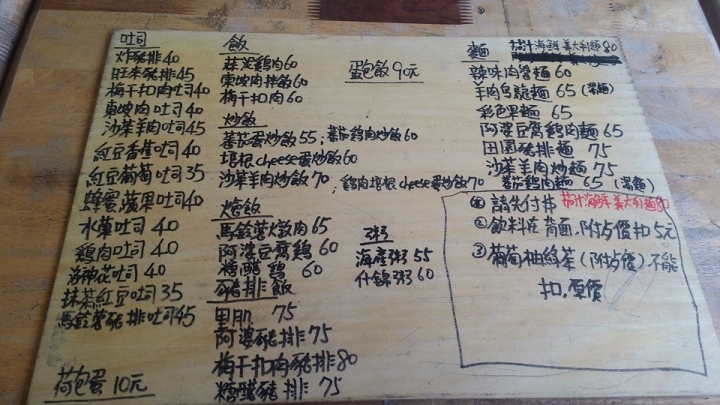 吐司
炸豬排40
旺來豬排45
梅干扣肉吐司40
東坡肉吐司40
沙茶羊肉吐司45
紅豆香蕉吐司40
紅豆葡萄吐司35
蜂蜜蘋果吐司40
水菓吐司40
鷄肉吐司40
洛神花吐司40
抹茶紅豆吐司35
馬鈴薯豬排吐司45
荷包蛋10元
飯
蒜泥鷄肉60
東坡肉拌飯60
梅干扣肉60
蛋包飯90元
炒飯
蕃茄蛋炒飯55；蕃茄鷄肉炒飯60
培根cheese蛋炒飯60
沙茶羊肉炒飯70；鷄肉培根cheese蛋炒飯70
燴飯
馬鈴薯燉肉65
阿婆豆腐鷄60
糖醋鷄60
豬排飯
里肌75
阿婆豬排75
梅干扣肉豬排80
糖醋豬排75
粥
海產粥55
什錦粥60
麵
茄汁海鮮義大利麵80
辣味肉醬麵60
羊肉烏龍麵65（湯麵）
彩色果麵65
阿婆豆腐鷄肉麵65
田園豬排麵75
沙茶羊肉炒麵75
蕃茄鷄肉麵65（湯麵）
茄汁海鮮義大利麵80
請先付款
②飲料在背面,附餐價扣5元
③葡萄柚綠茶(附餐價)不能
扣,原價